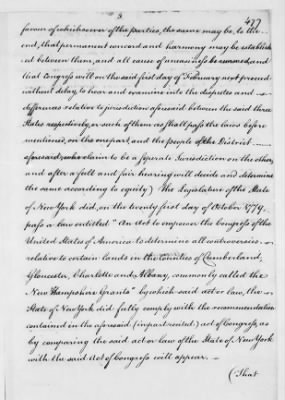 3
477
favour of whichsoever of the parties, the same may be, to the
end, that permanent concord and harmony may be establish
ed between them, and all cause of uneasiness be removed, and
that Congress will on the said first day of February next proceed
without delay, to hear and examine into the disputes and
differences relative to jurisdiction aforesaid between the said three
States respectively, or such of them as shall pass the laws before
mentioned, on the one part, and the people of the District
aforesaid, who claim to be a seperate Jurisdiction on the other,
and after a full and fair hearing will decide and determine
the same according to equity) The Legislature of the State
of New York did, on the twenty first day of October 1779,
pass a law entitled "An Act to empower the Congress of the
United States of America to determine all controversies
relative to certain lands in the Counties of Cumberland,
Gloucester, Charlotte and Albany, commonly called the
New Hampshire Grants" by which said act or law, the
State of New York did fully comply with the recommendation
contained in the aforesaid (in part recited) act of Congress, as
by comparing the said act or law of the State of New York
with the said Act of Congress will appear.
(That